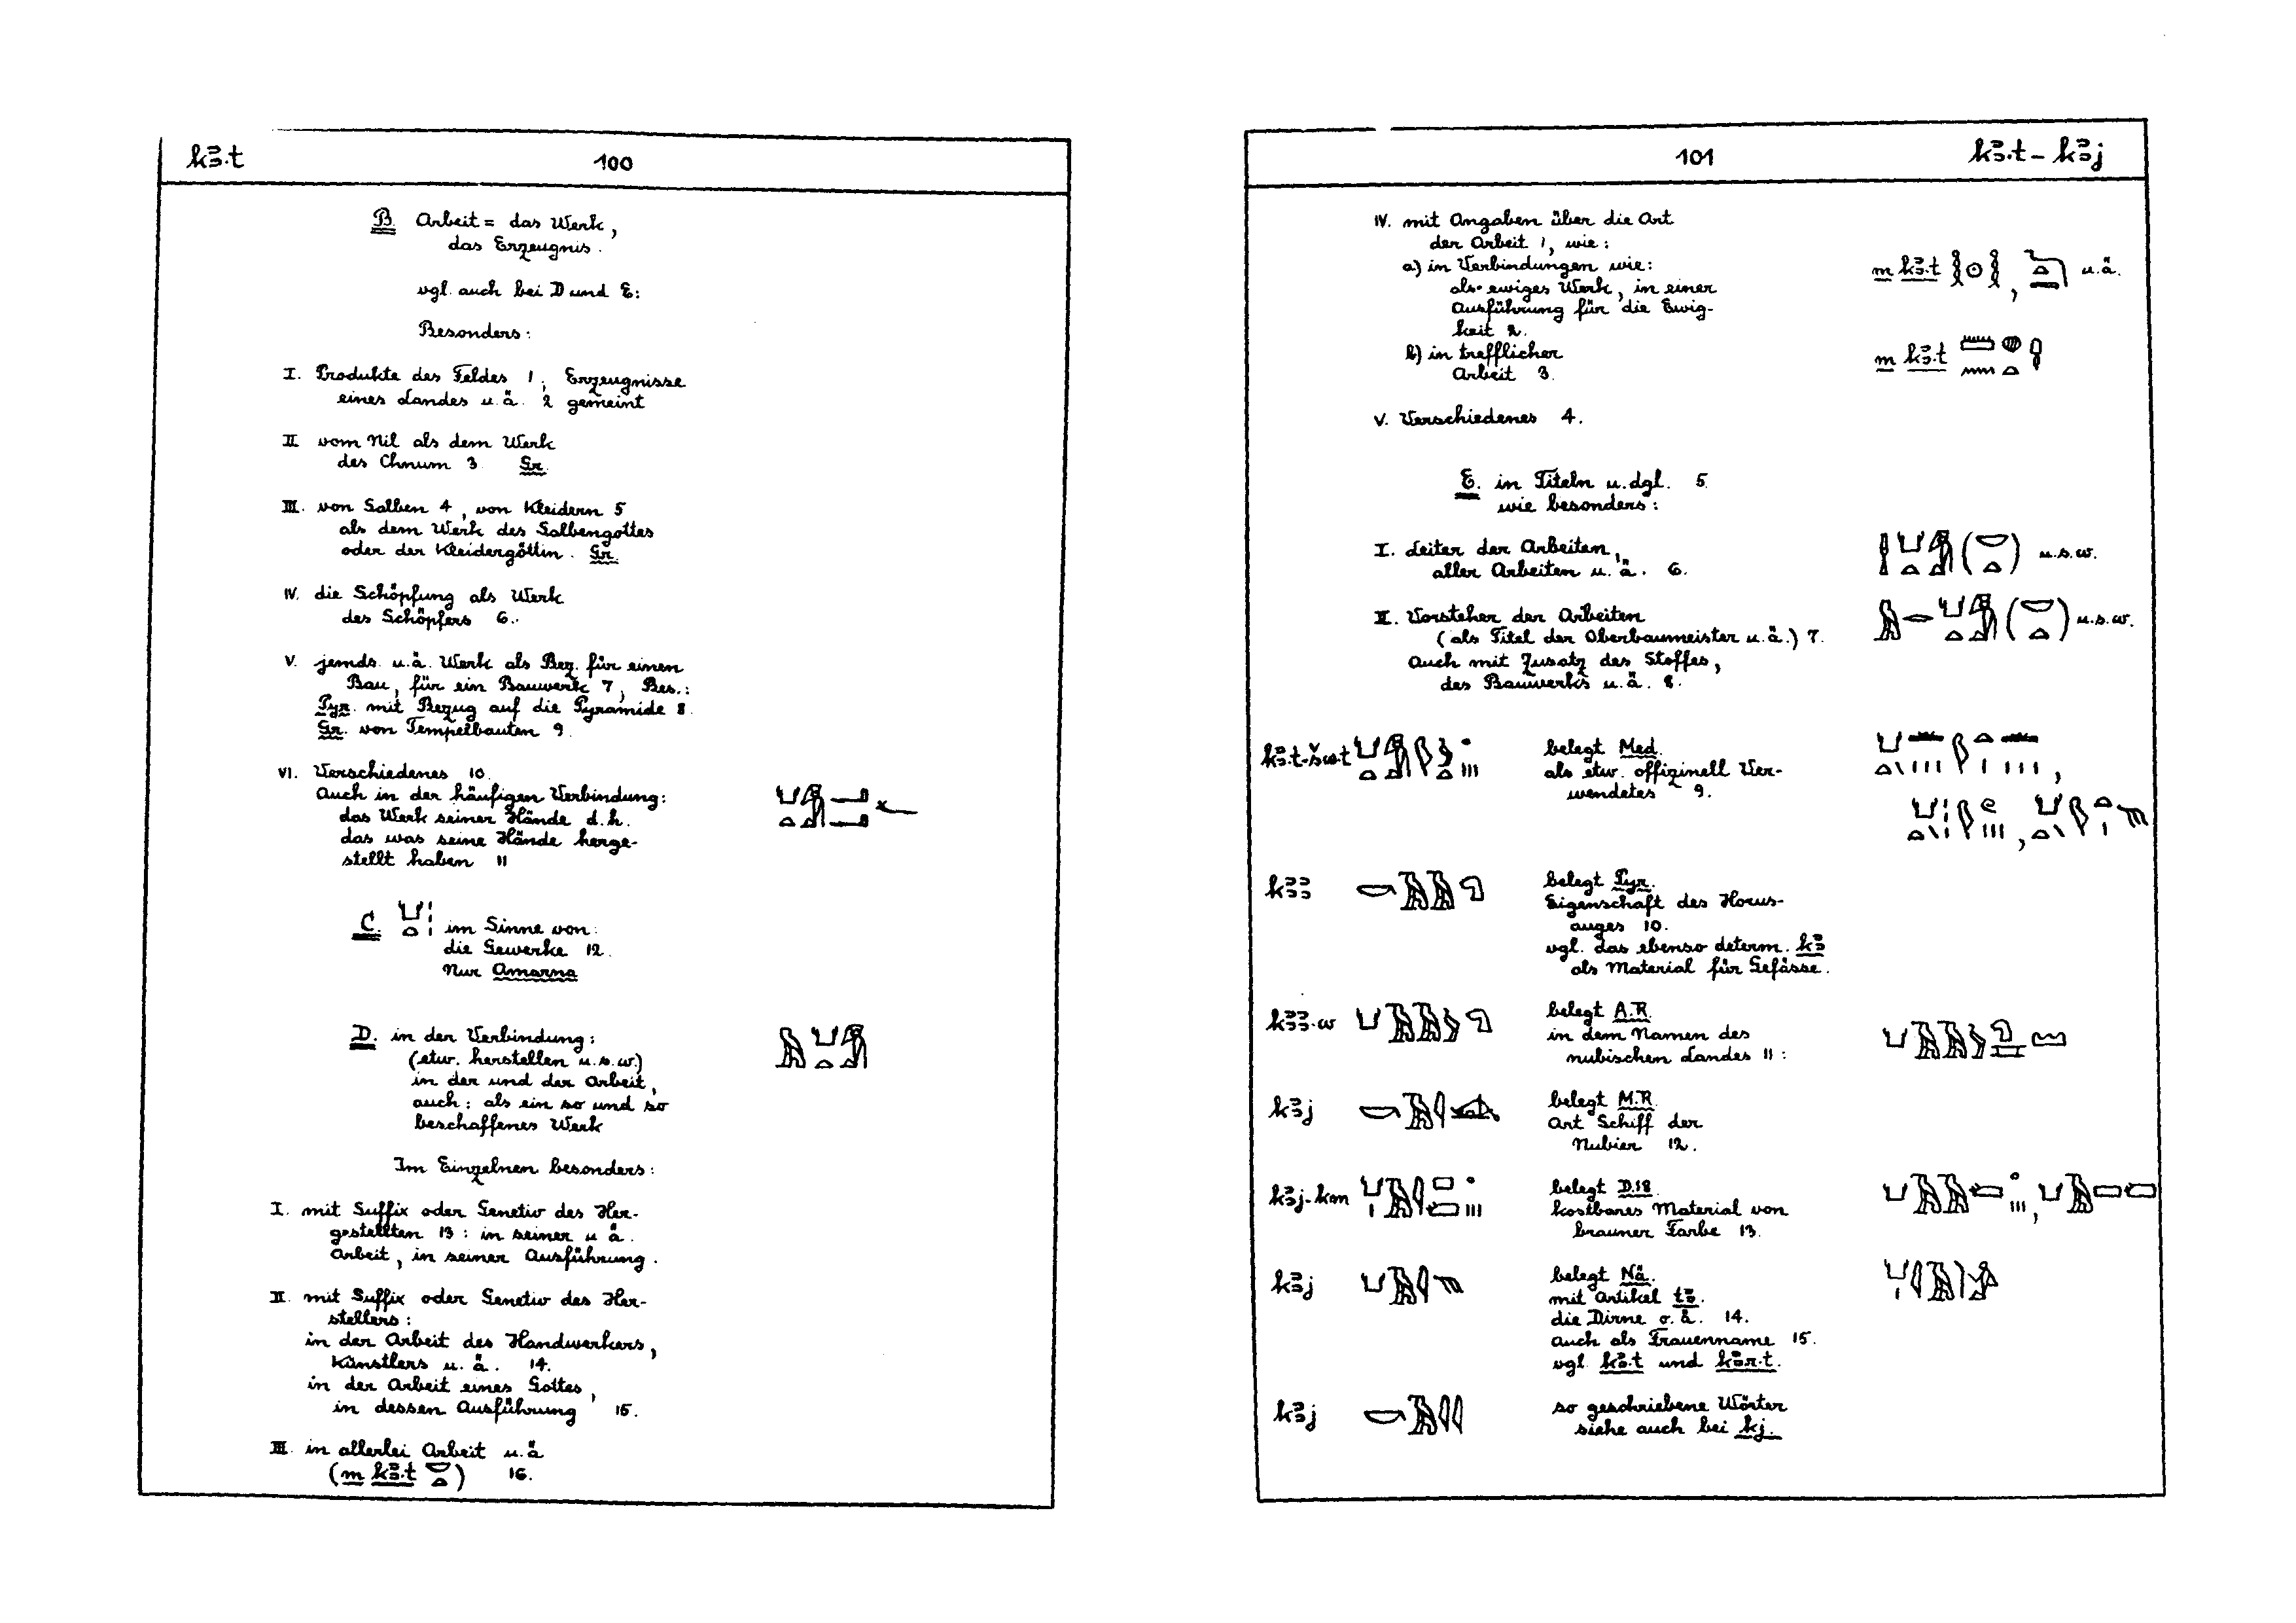 kꜣ.t 100
B. Arbeit = das Werk,
das Erzeugnis.
vgl. auch bei D und E:
Besonders:
I. Produkte des Feldes 1, Erzeugnisse
eines Landes u.ä. 2 gemeint
II vom Nil als dem Werk
des Chnum 3. Gr.
III. von Salben 4, von Kleidern 5
als dem Werk des Salbengottes
oder der Kleidergöttin. Gr.
IV. die Schöpfung als Werk
des Schöpfers 6.
V. jemds. u.ä. Werk als Bez. für einen
Bau, für ein Bauwerk 7, Bes.:
Pyr. mit Bezug auf die Pyramide 8.
Gr. von Tempelbauten 9.
VI. Verschiedenes 10.
Auch in der häufigen Verbindung:
das Werk seiner Hände d.h.
das was seine Hände herge-
stellt haben 11
C. im Sinne von:
die Gewerke 12.
Nur Amarna
D. in der Verbindung:
(etw. herstellen u.s.w.)
in der und der Arbeit,
auch: als ein so und so
beschaffenes Werk
Im Einzelnen besonders:
I. mit Suffix oder Genetiv des Her-
gestellten 13: in seiner u.ä.
Arbeit, in seiner Ausführung.
II. mit Suffix oder Genetiv des Her-
stellers:
in der Arbeit des Handwerkers,
Künstlers u.ä. 14.
in der Arbeit eines Gottes,
in dessen Ausführung 15.
III. in allerlei Arbeit u.ä
(m kꜣ.t 𓎟𓏏) 16.
101 kꜣ.t – kꜣj
IV. mit Angaben über die Art
der Arbeit 1, wie:
a) in Verbindungen wie: m kꜣ.t 𓎛𓇳𓎛, u.ä.
als ewiges Werk, in einer
Ausführung für die Ewig-
keit 2.
b) in trefflicher m kꜣ.t 𓏠𓈖𓐍𓏏
Arbeit 3.
V. Verschiedenes 4.
E. in Titeln u.dgl. 5
wie besonders:
I. Leiter der Arbeiten,
aller Arbeiten u.ä. 6. u.s.w.
II. Vorsteher der Arbeiten
(als Titel der Oberbaumeister u.ä.) 7. u.s.w.
Auch mit Zusatz des Stoffes,
des Bauwerks u.ä. 8.
kꜣ.t-šw.t belegt Med.
als etw. offizinell Ver-
wendetes 9.
kꜣꜣ belegt Pyr.
Eigenschaft des Horus-
auges 10.
vgl. das ebenso determ. kꜣ
als Material für Gefässe.
kꜣꜣ.w belegt A.R.
in dem Namen des
nubischen Landes 11:
kꜣj belegt M.R.
Art Schiff der
Nubier 12.
kꜣj-km belegt D.18
kostbares Material von
brauner Farbe 13.
kꜣj belegt Nä.
mit Artikel tꜣ.
die Dirne o.ä. 14.
auch als Frauenname 15.
vgl. kꜣ.t und kꜣr.t.
kꜣj so geschriebene Wörter
siehe auch bei kj.